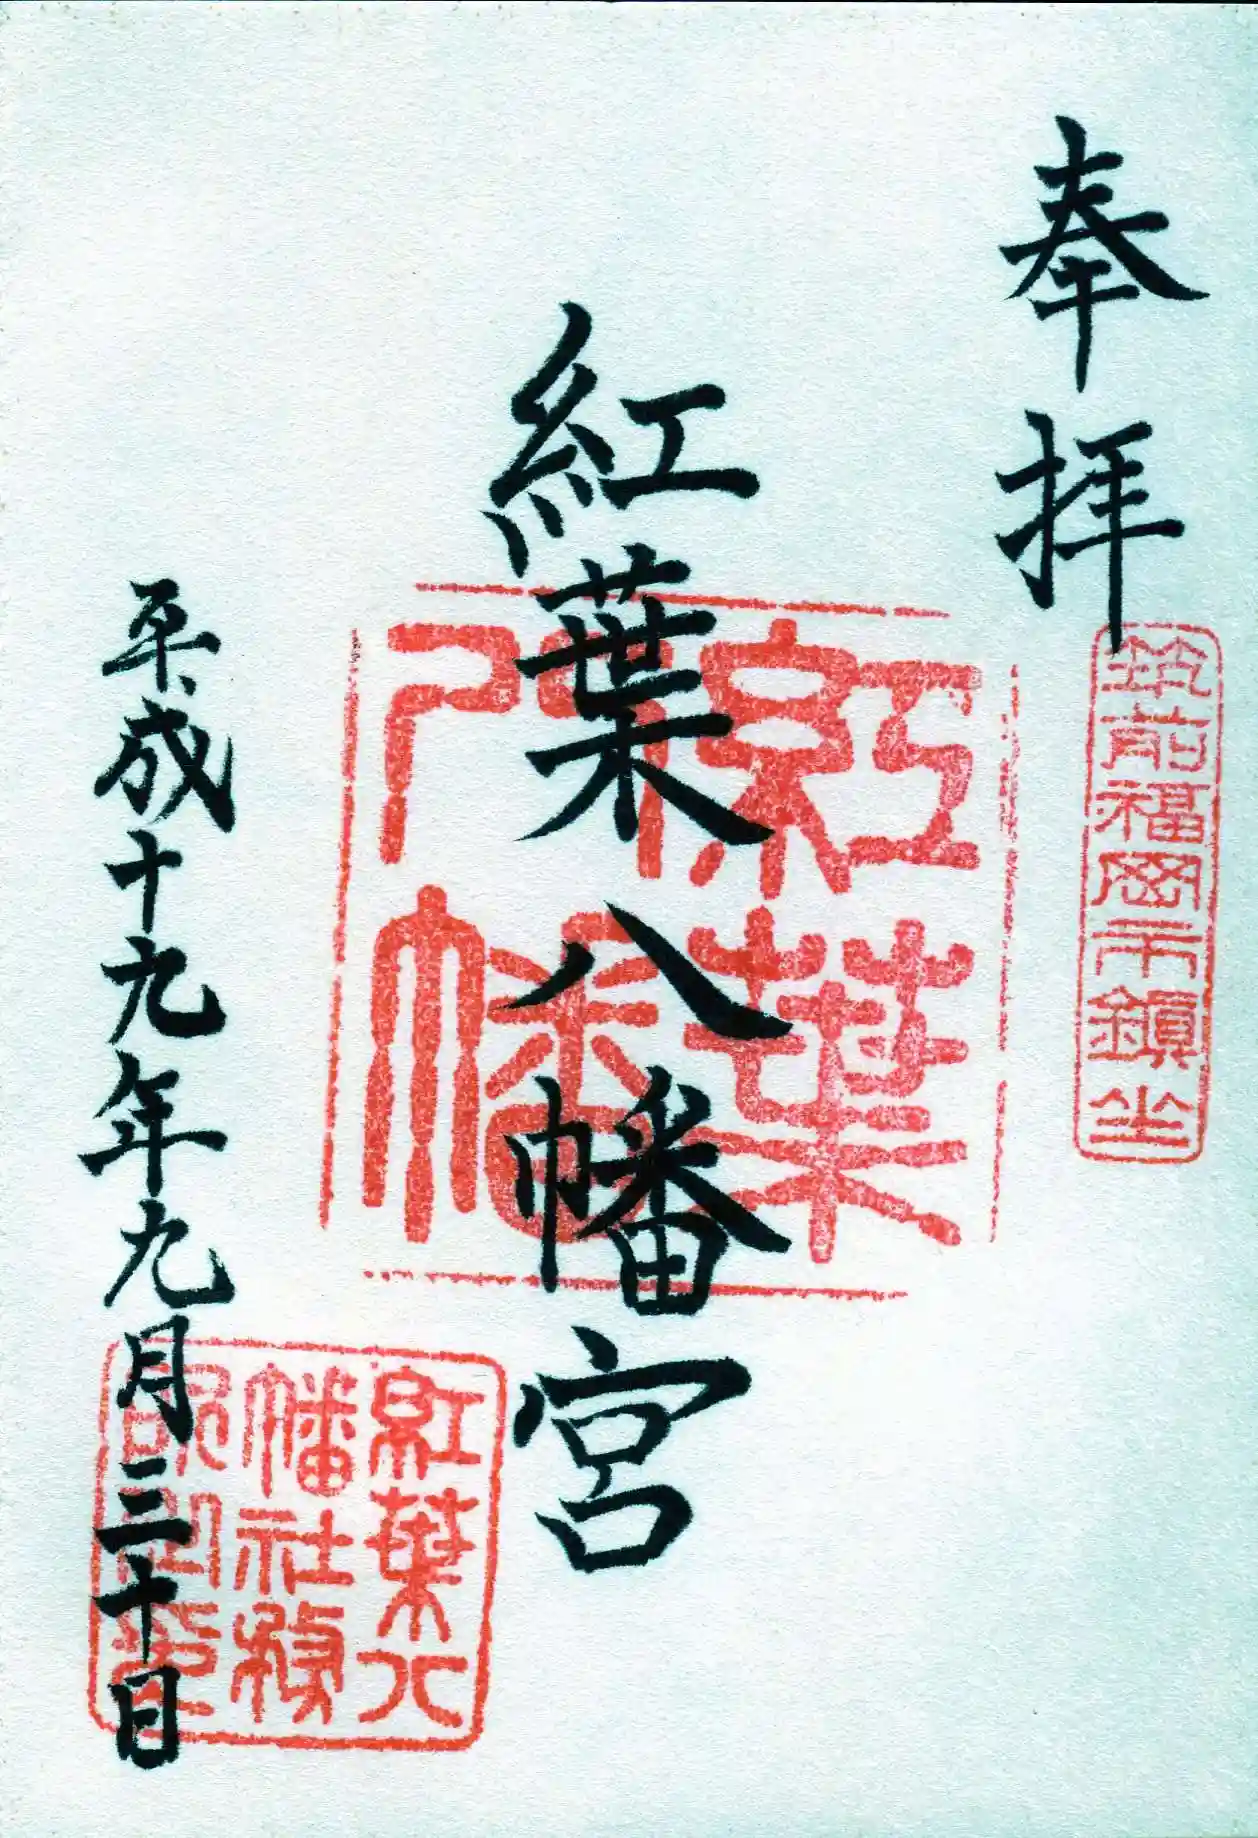 奉拝
筑前福岡市鎮坐
紅葉八幡宮
紅葉八幡
平成十九年九月三十日
紅葉八
幡社務